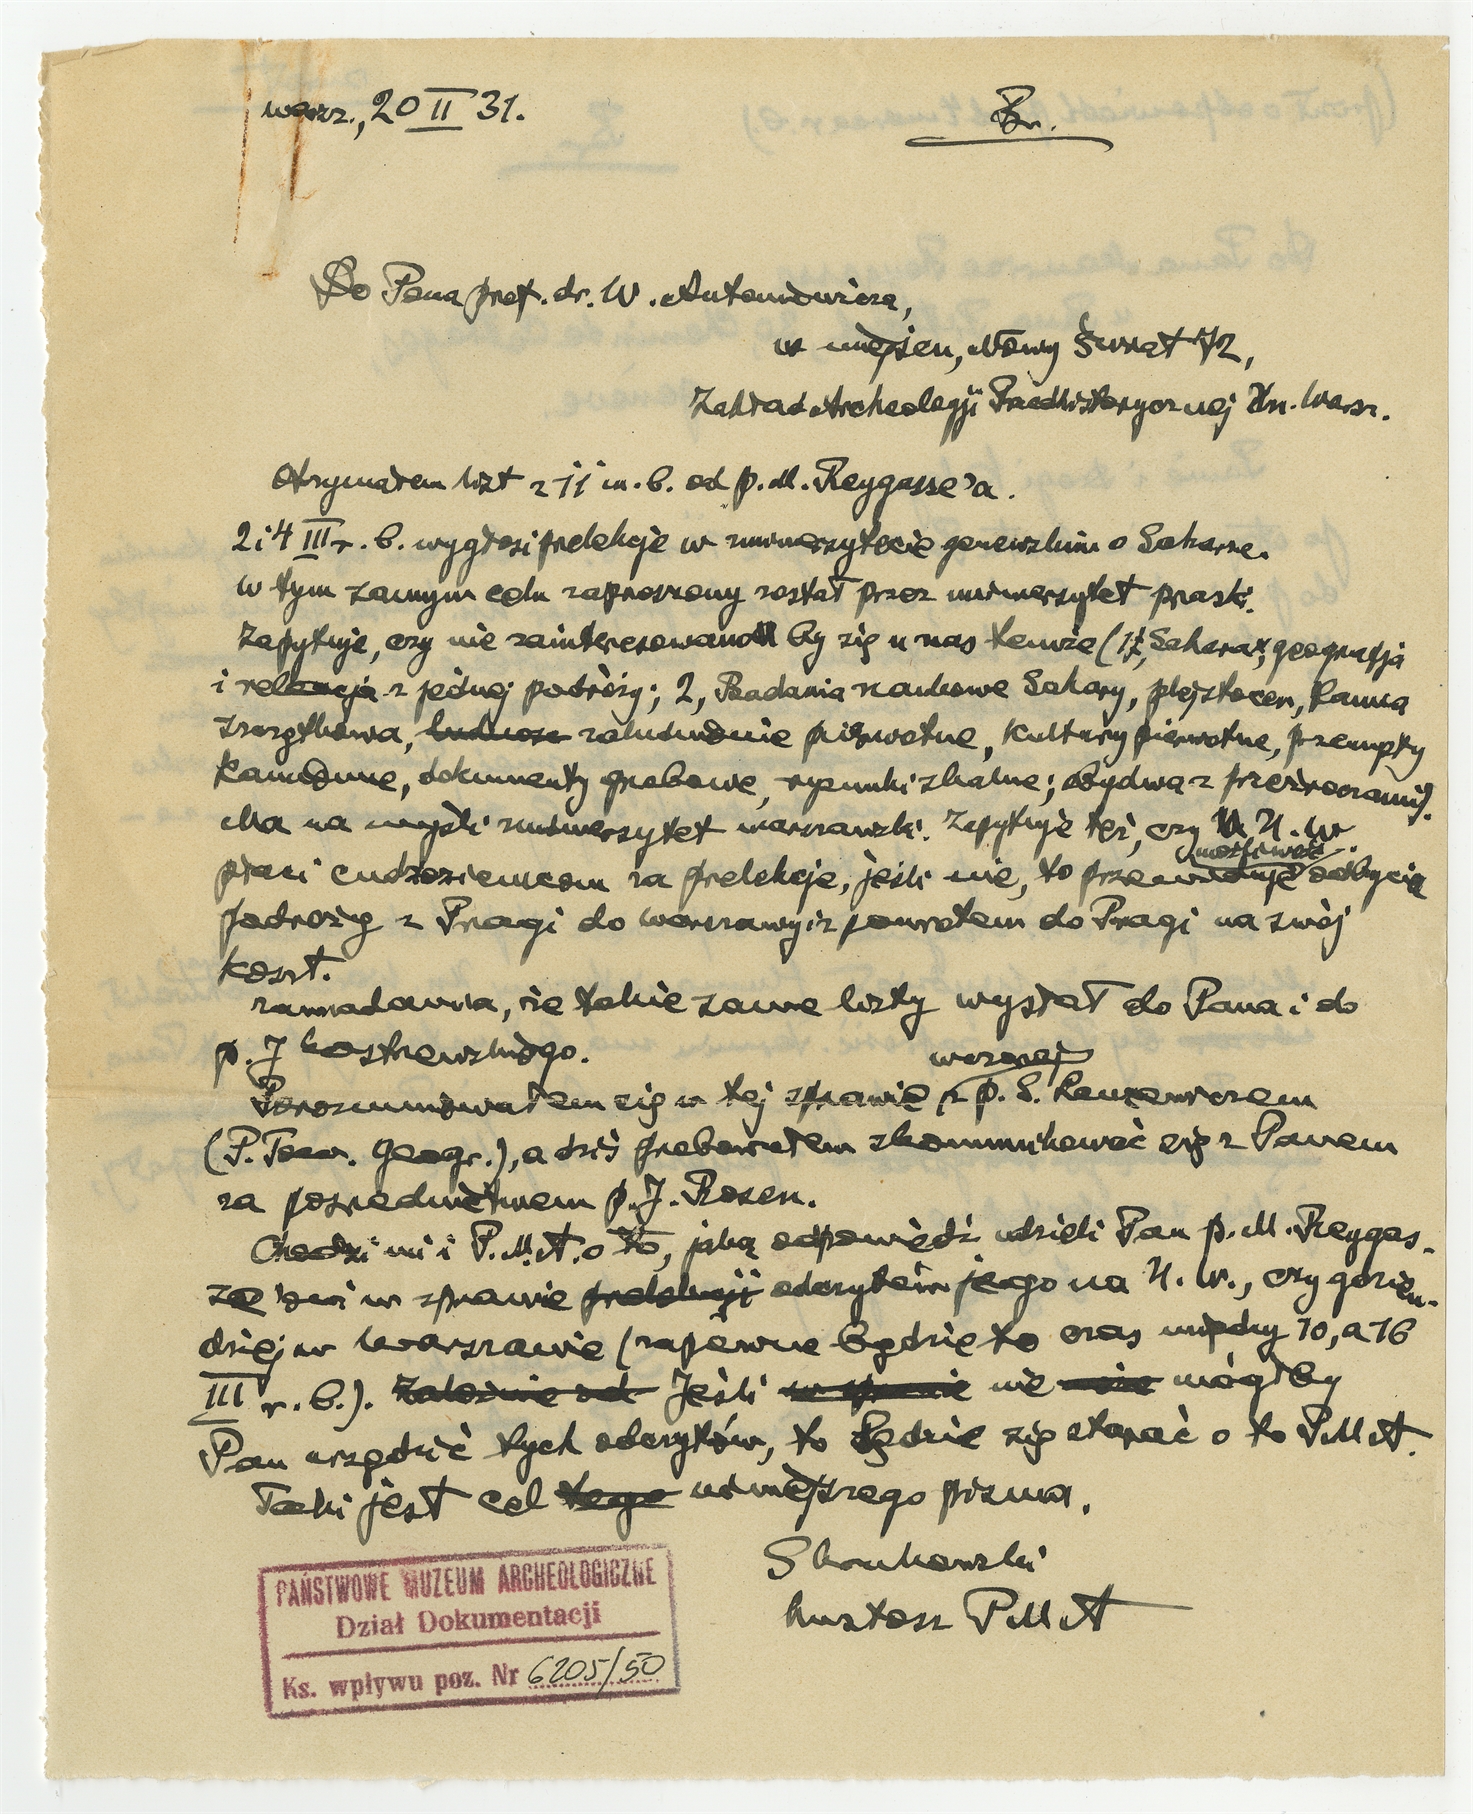 Warsz., 20 II 31.
Do Pana prof. dr. W. Antoniewicza,
w miejscu, Nowy Świat 72,
Zakład Archeologji Przedhistorycznej Un. Warsz.
Otrzymałem list z 11 m. b. od p. M. Reygasse'a.
2 i 4 III r. b. wygłosi prelekcje w uniwersytecie genewskim o Saharze.
W tym samym celu zaproszony został przez uniwersytet praski.
Zapytuje, czy nie zainteresowanoby się u nas temże (1, Sahara, geografja
i relacja z jednej podróży; 2, Badania naukowe Sahary, plejstocen, fauna
szczątkowa, zaludnienie pierwotne, kultury pierwotne, przemysły
kamienne, dokumenty grobowe, rysunki skalne; obydwa z przeźroczami).
Ma na myśli uniwersytet warszawski. Zapytuje też, czy U. W.
możliwość
płaci cudzoziemcom za prelekcje, jeśli nie, to przewiduje odbycia
podróży z Pragi do Warszawy i z powrotem do Pragi na swój
koszt.
Zawiadamia, że takie same listy wysłał do Pana i do
p. J. Kostrzewskiego.
wczoraj
Porozumiewałem się w tej sprawie z p. S. Lencewiczem
(P. Tow. Geogr.), a dziś próbowałem skomunikować się z Panem
za pośrednictwem p. J. Rosen.
Chodzi mi i P.M.A. o to, jaką odpowiedź udzieli Pan p. M. Reygas-
se'owi w sprawie prelekcji odczytów jego na U. W., czy gdziein-
dziej w Warszawie (zapewne będzie to czas między 10, a 16
III r. b.). Zależnie od Jeśli w sprawie nie mógłby
Pan urządzić tych odczytów, to będzie się starać o to PMA.
Taki jest cel tego niniejszego pisma.
S Krukowski
kustosz PMA
PAŃSTWOWE MUZEUM ARCHEOLOGICZNE
Dział Dokumentacji
Ks. wpływu poz. Nr 6205/50